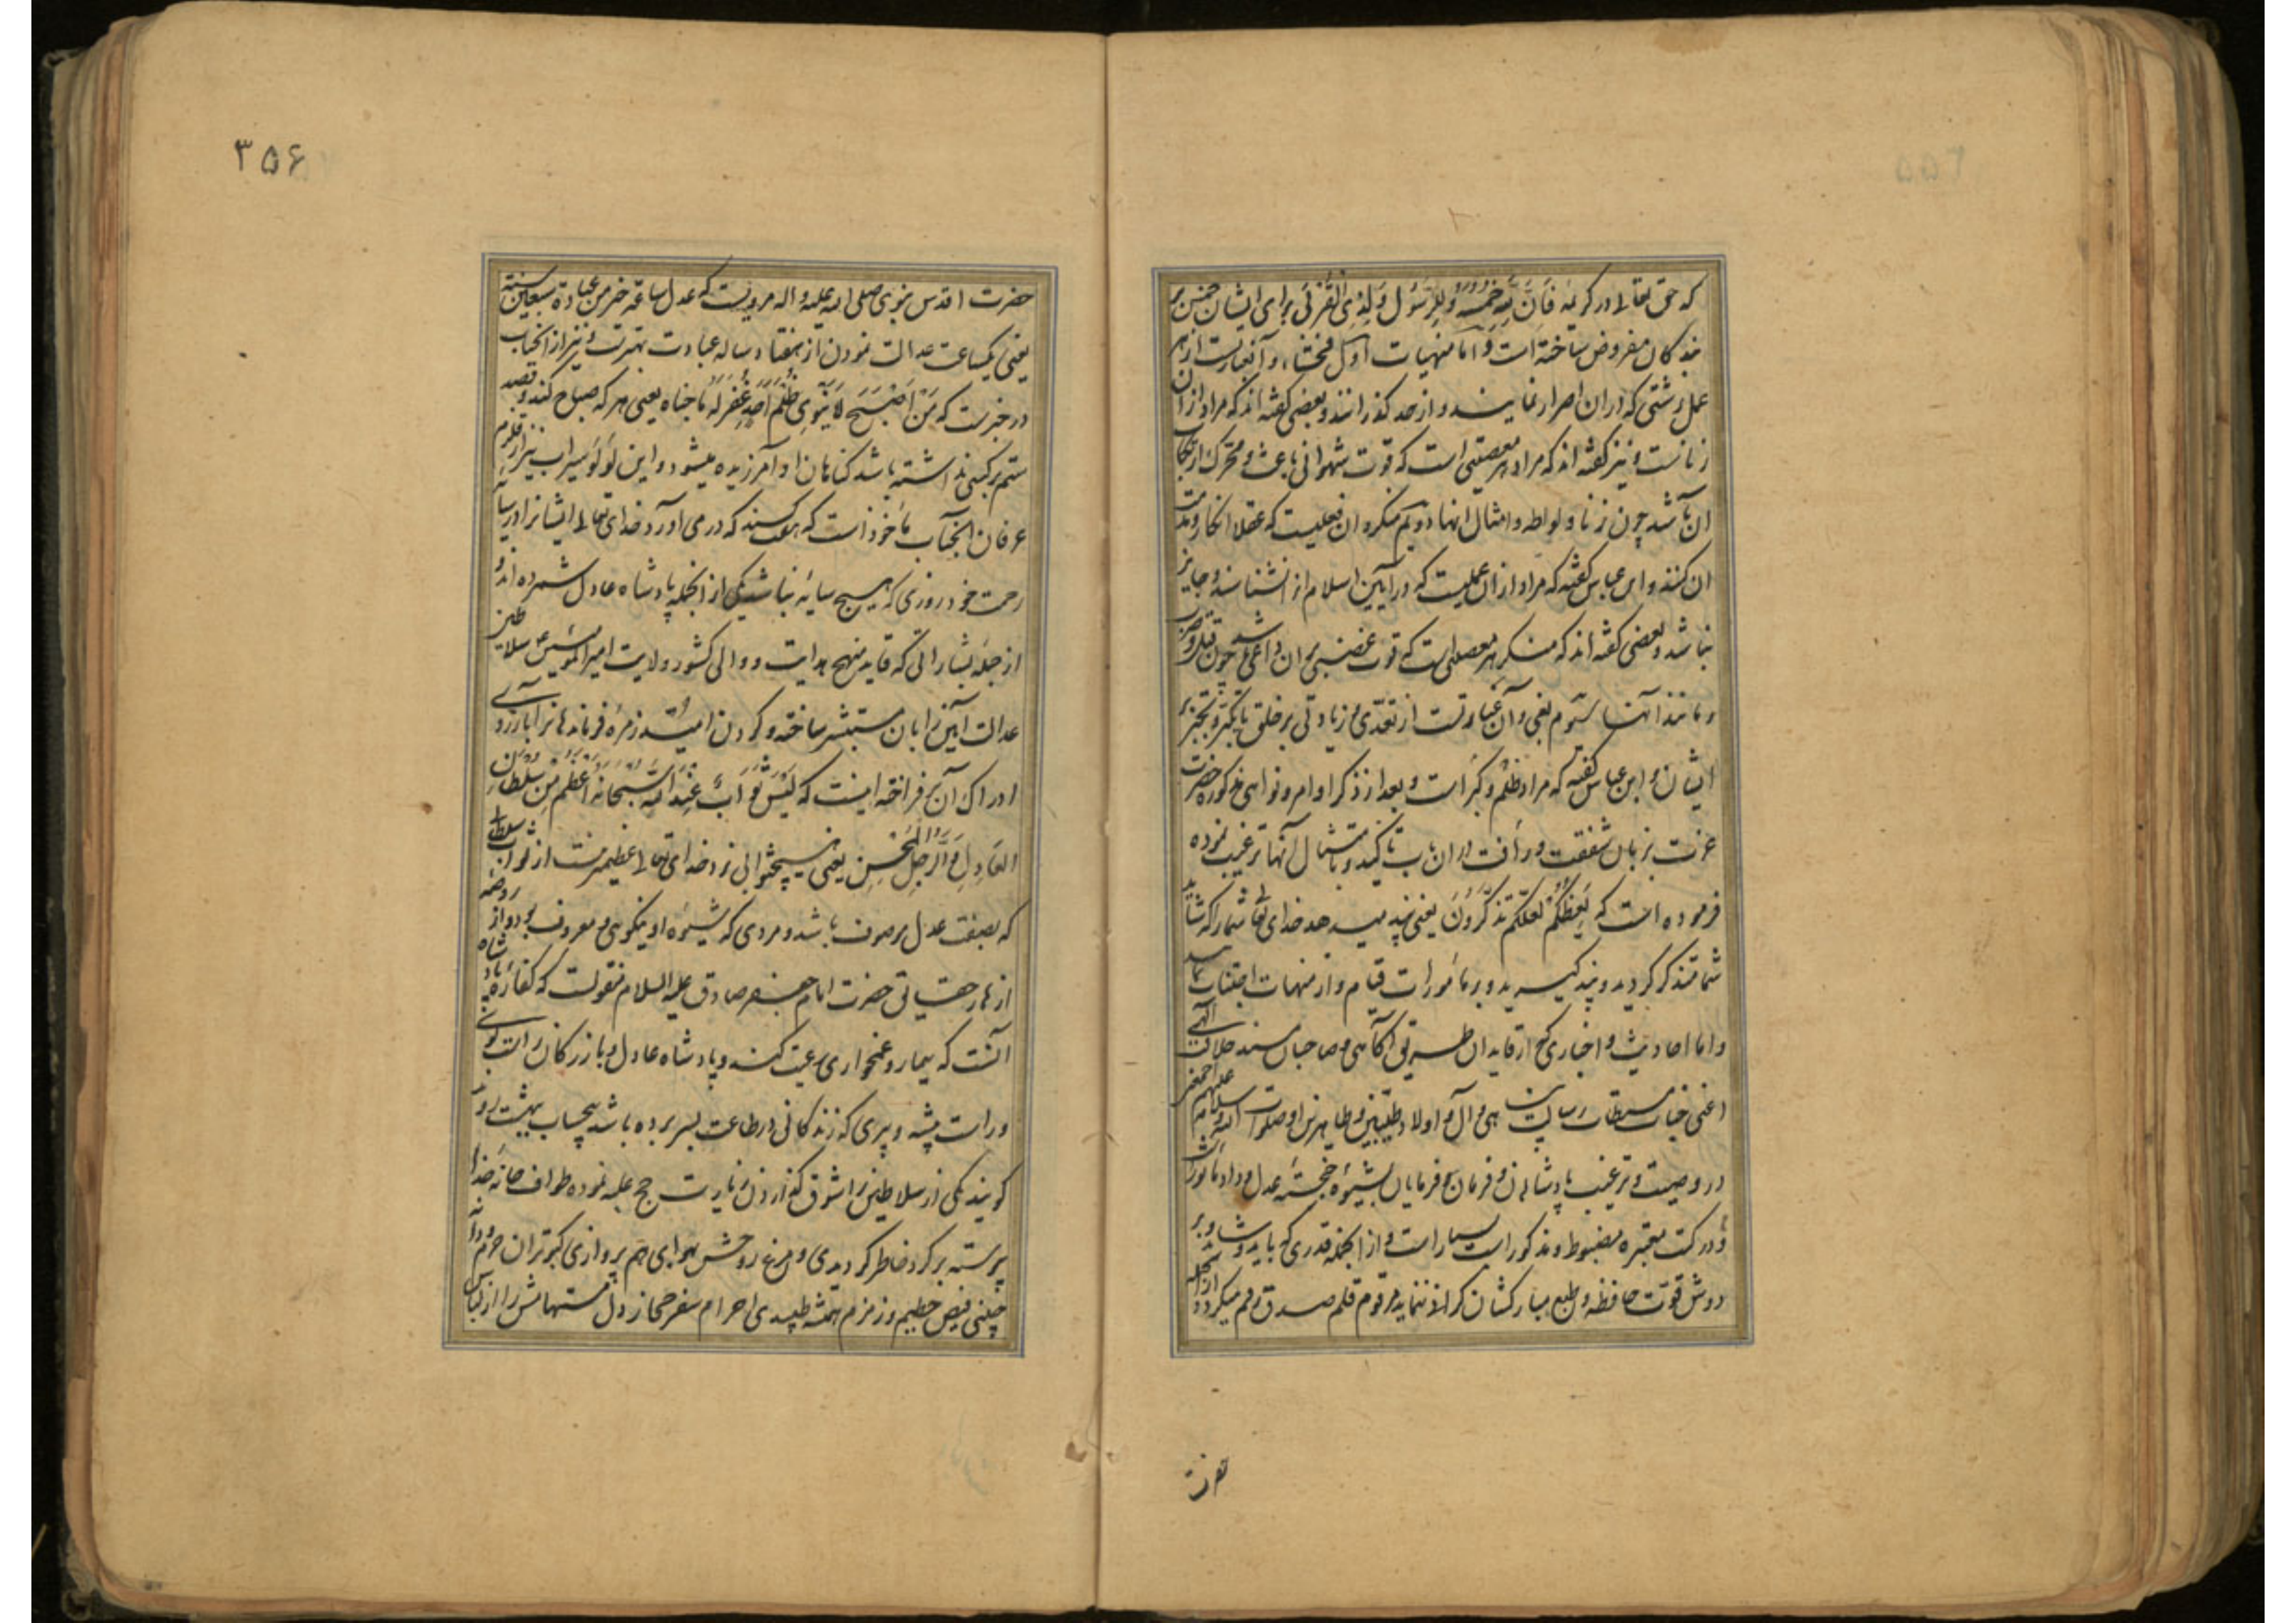 که حق تعالی در کریمه فَاَنَّ لِلّهِ خُمُسَهُ وَلِلرَّسُولِ وَلِذِی القُرْبی برای ایشان خمس بر
بندکان مفروض ساخته است و اما منهیات اول فحشاء و آنعبارت از هر
عمل زشتی که در ان اصرار نمایند و از حد کذرانند و بعضی کفته اند که مراد از ان
زناست و نیز کفته اند که مراد هر معصیتی است که قوت شهوانی باعث و محرک ارتکاب
ان باشد چون زنا و لواطه و امثال انها دویم منکر و ان فعلیست که عقلا انکار و مذمت
ان کنند و ابن عباس کفته که مراد از ان عملیست که در آیین اسلام انرا نشناسند و جایز
نباشد و بعضی کفته اند که منکر هر معصیتی است که قوت غضبی بر ان داعی باشد چون قتل و ضرب
و مانند آنها سیّوم بغی و آن عبارتست از تعدّی و زیادتی بر خلق با تکبّر و تجبّر بر
ایشان و ابن عباس کفته که مراد ظلم و کبر است و بعد از ذکر اوامر و نواهی مذکوره حضرت
عزت بزبان شفقت و رأفت در ان باب تاکید و بامتثال آنها ترغیب نموده
فرموده است که یَعِظُکُمْ لَعَلَّکُمْ تَذَکَّرُونَ یعنی پند میدهد خدای تعالی شما را که شاید
شما متذکر کردید و پند کیرید و بر مأمورات قیام و از منهیات اجتناب نمایید
و اما احادیث و اخباری که از قایدان طریق آکاهی و صاحبان مسند خلافت الهی
اعنی جناب مستطاب رسالت پناهی و آل و اولاد طیّبین و طاهرین او صلوات الله و سلامه علیهم اجمعین
در وصیت و ترغیب پادشاهان و فرمان فرمایان بشیوهٔ خجستهٔ عدل و داد مأثور است
و در کتب معتبره مضبوط و مذکور است بسیار است و از انجمله قدری که باید و شاید و بر
دوش قوّت حافظه و طبع مبارکشان کرانی ننماید مرقوم قلم صدق رقم میکردد از انجمله
حضرت
۳۵۶
حضرت اقدس نبوی صلی الله علیه و اله مرویست که عدل ساعة خیر من عبادة سبعین سنة
یعنی یکساعت عدالت نمودن از هفتاد ساله عبادت بهترست و نیز از انجناب
در خبرست که مَنْ اَصْبَحَ لا یَنْوِی ظُلْمَ اَحَدٍ غُفِرَ لَهُ ما جَناه یعنی هر که صباح کند و قصد
ستم بر کسی نداشته باشد کناهان او آمرزیده میشود و این لؤلؤ سیراب نیز از قلزم
عرفان انجناب مأخوذ است که هفت کسند که درمی آورد خدای تعالی ایشانرا در سایهٔ
رحمت خود روزی که هیچ سایهٔ نباشد یکی از انجمله پادشاه عادل شمرده اند و
از جملهٔ بشاراتی که قاید منهج هدایت و والی کشور ولایت امیرالمؤمنین ع سلاطین
عدالت آیین را بان مستبشر ساخته و کردن امید زمرهٔ فرماندهانرا بارزوی
ادراک آن بر فراخته اینست که لَیْسَ ثَوابٌ عِنْدَ اللهِ سُبْحانَهُ اَعْظَمُ مِنْ ثَوابِ السُّلْطانِ
العادِلِ وَ الرَّجُلِ المُحْسِنِ یعنی هیچ ثوابی نزد خدای تعالی عظیمتر نیست از ثواب سلطانی
که بصفت عدل موصوف باشد و مردی که شیوهٔ او نیکویی و معروف بود و از روضهٔ
ازهار حقایق حضرت امام جعفر صادق علیه السلام منقولست که کفارهٔ پادشاه
آنست که تیمار و غمخواری رعیت کند و پادشاه عادل و بازرکان راست کوی
و راست پیشه و پیری که زندکانی در طاعت بسر برده باشد بیحساب ببهشت رود آورده
کویند یکی از سلاطین را شوق کذاردن زیارت حج غلبه نموده طواف خانهٔ خدا
پیوسته بر کرد خاطر کردیدی و مرغ روحش بهوای هم پروازی کبوتران حرم و دانه
چینی فیض حطیم و زمزم همیشه طپیدی احرام سفر حجاز دل مستهامش را از لباس